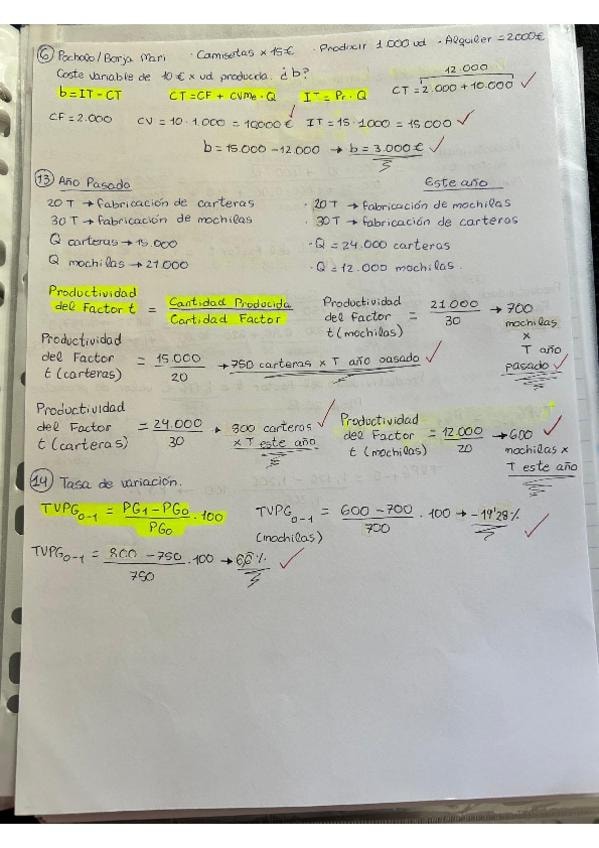 6 Pocholo/Borja Mari · Camisetas x 15€ · Producir 1.000 ud · Alquiler = 2000€
Coste variable de 10 € x ud producida. ¿b?
12.000
b = IT - CT CT = CF + CVMe · Q IT = Pr · Q CT = 2.000 + 10.000
CF = 2.000 CV = 10 · 1.000 = 10000 € IT = 15 · 1000 = 15.000
b = 15.000 - 12.000 → b = 3.000 €
13 Año Pasado Este año
20 T → fabricación de carteras · 20T → fabricación de mochilas
30 T → fabricación de mochilas · 30T → fabricación de carteras
Q carteras → 15.000 · Q = 24.000 carteras
Q mochilas → 21.000 · Q = 12.000 mochilas.
Productividad del Factor t = Cantidad Producida / Cantidad Factor
Productividad del Factor t (mochilas) = 21.000 / 30 → 700 mochilas x T año pasado
Productividad del Factor t (carteras) = 15.000 / 20 → 750 carteras x T año pasado
Productividad del Factor t (carteras) = 24.000 / 30 → 800 carteros x T este año
Productividad del Factor t (mochilas) = 12.000 / 20 → 600 mochilas x T este año
14 Tasa de variación.
TVPG0-1 = PG1 - PG0 / PG0 · 100 TVPG0-1 (mochilas) = 600 - 700 / 700 · 100 → -14'28%
TVPG0-1 = 800 - 750 / 750 · 100 → 6,6%